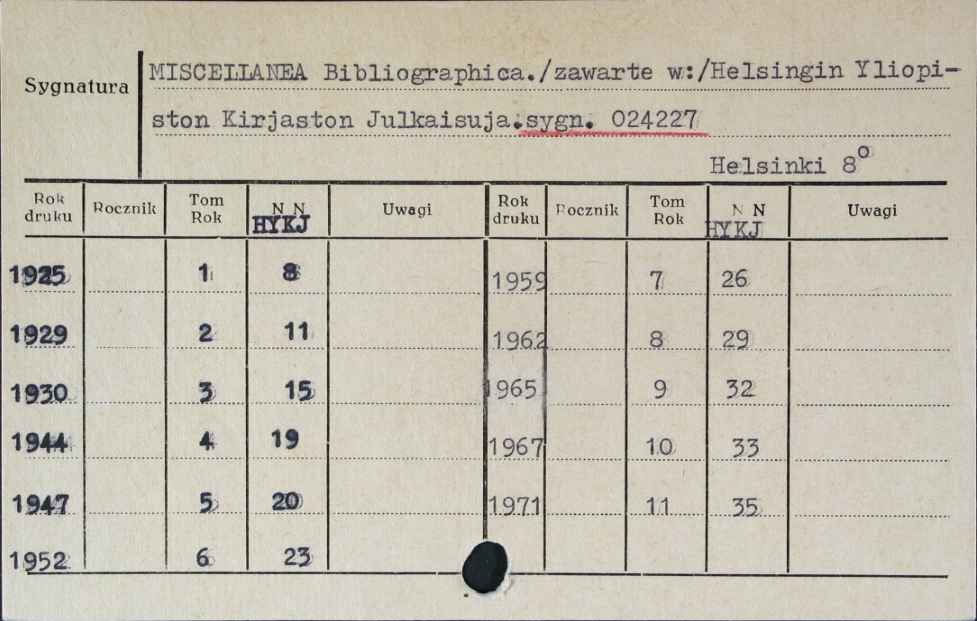 Sygnatura
MISCELLANEA Bibliographica./zawarte w:/Helsingin Yliopi-
ston Kirjaston Julkaisuja.sygn. 024227
Helsinki 8°
Rok druku Rocznik Tom Rok N N HYKJ Uwagi Rok druku Rocznik Tom Rok N N HYKJ Uwagi
1925 1 8 1959 7 26
1929 2 11 1962 8 29
1930 3 15 1965 9 32
1944 4 19 1967 10 33
1947 5 20 1971 11 35
1952 6 23